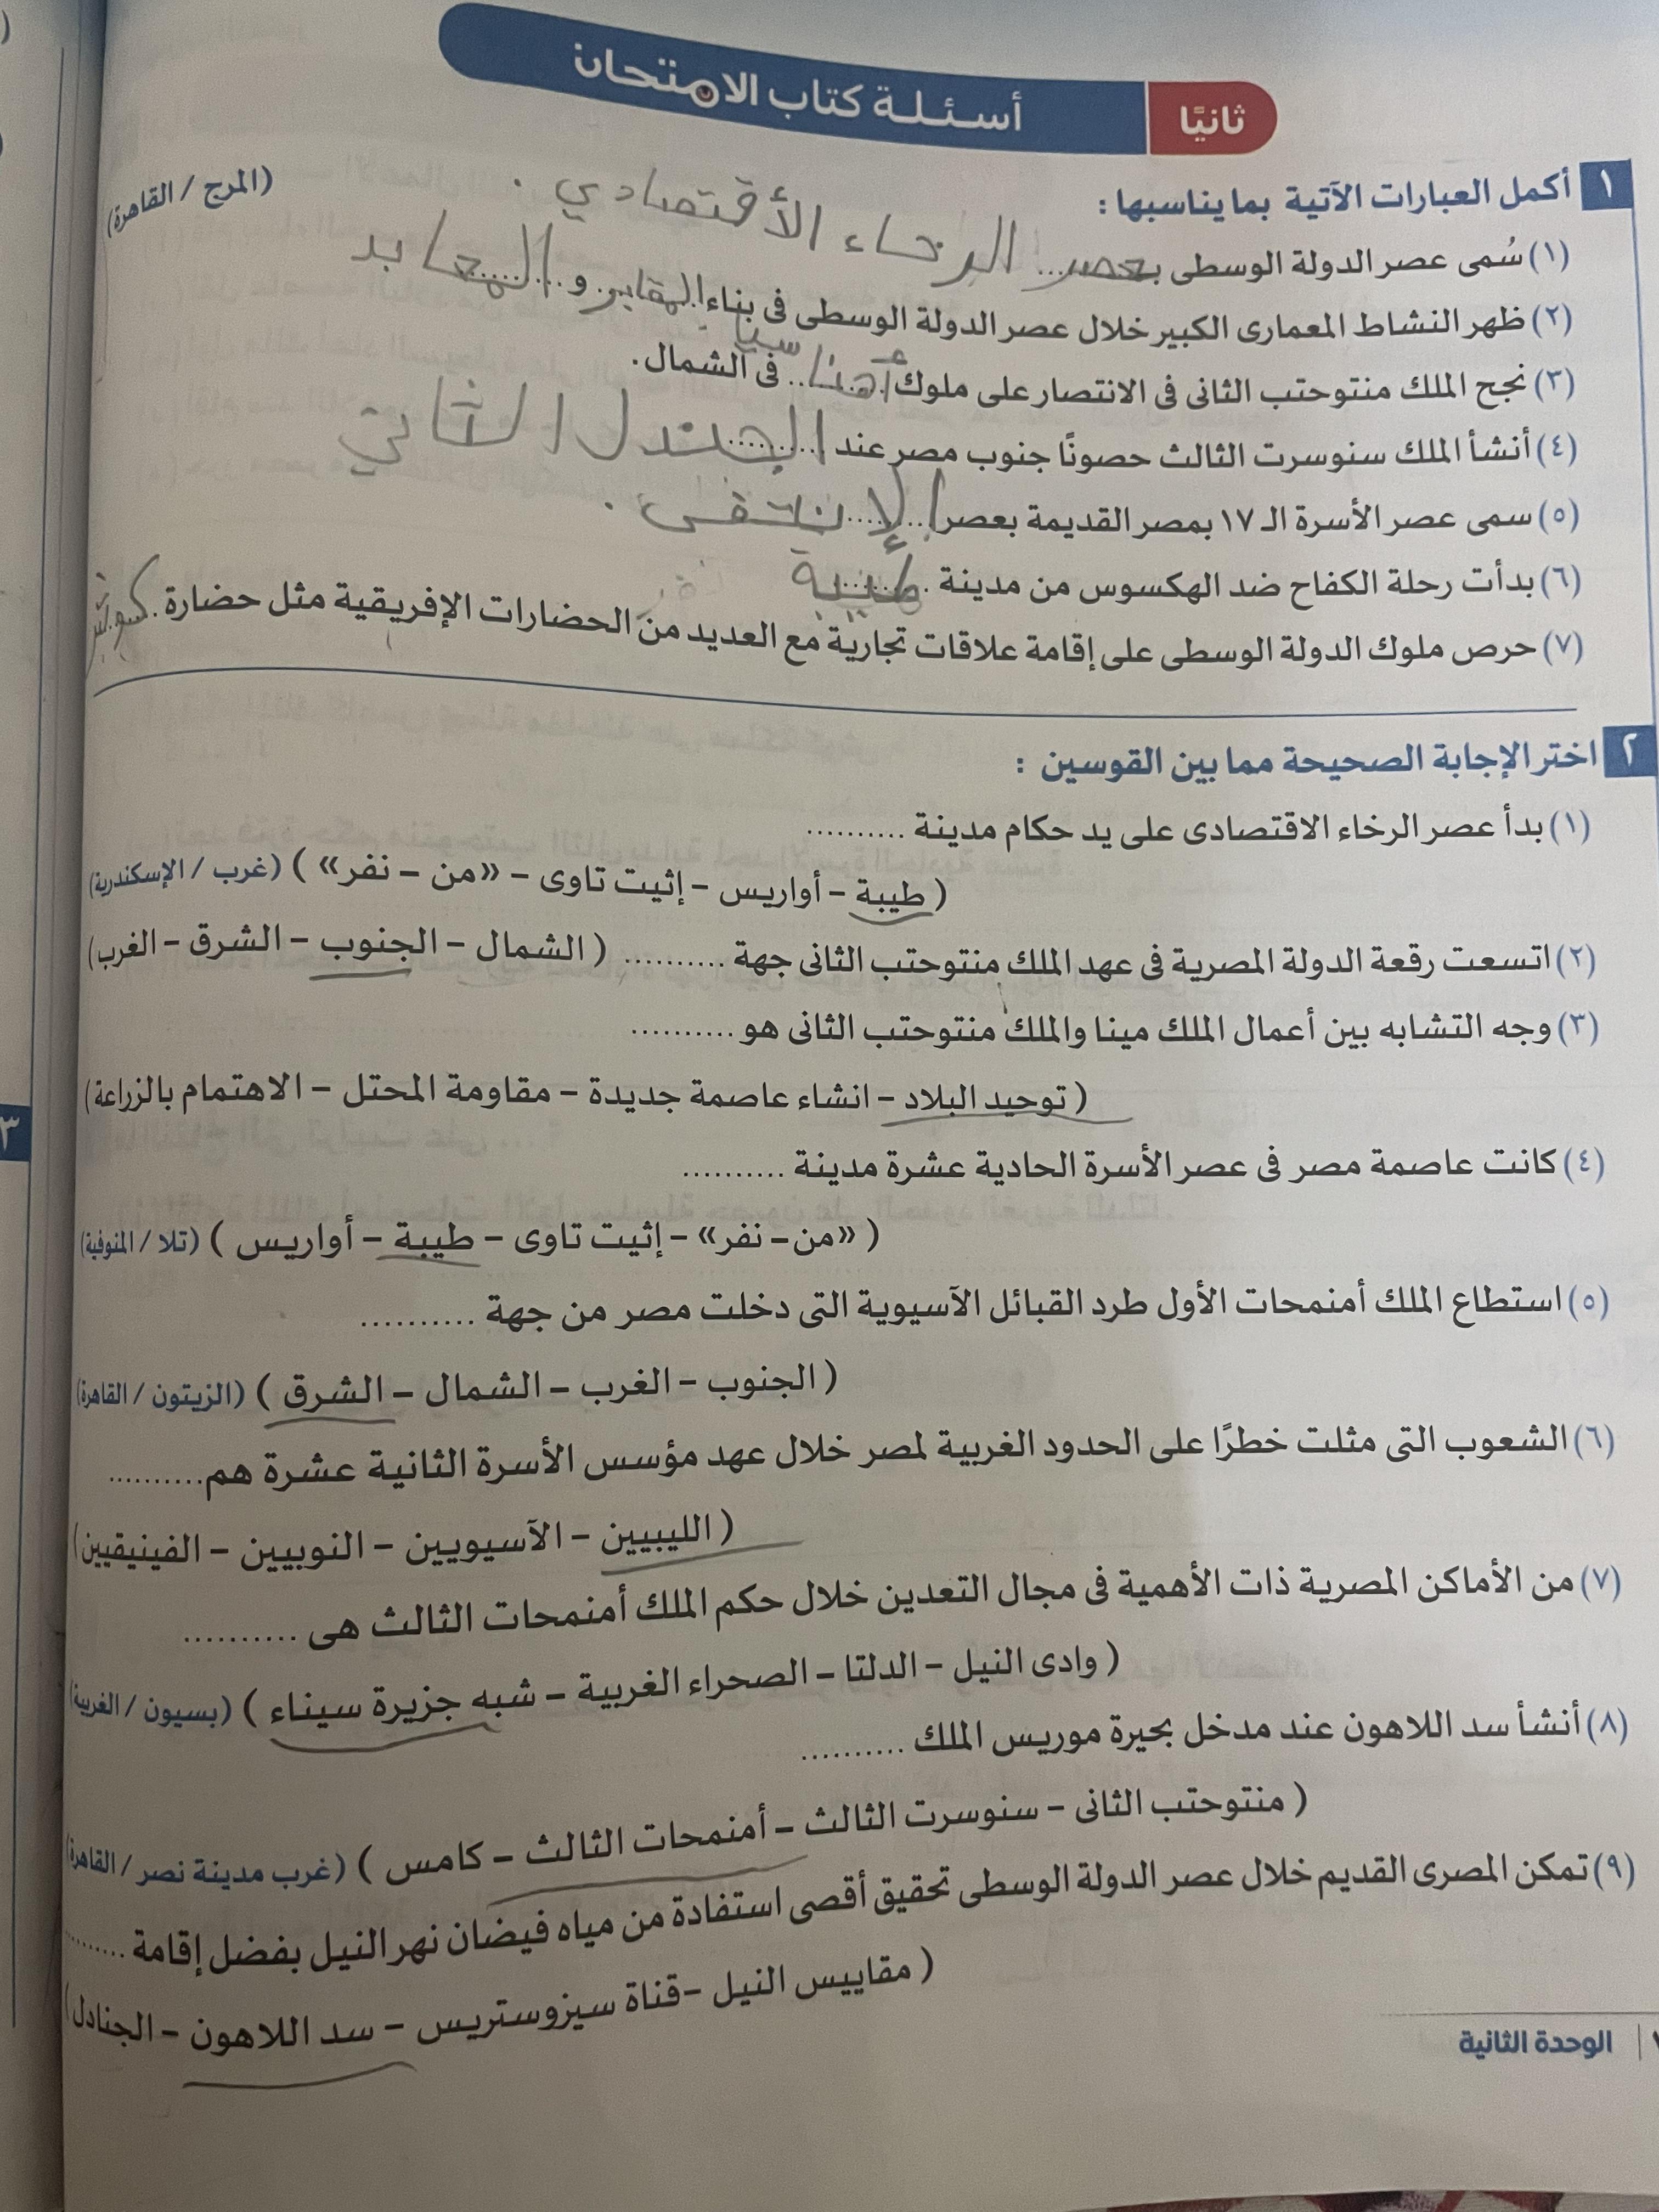 ثانيًا أسئلة كتاب الامتحان
١ أكمل العبارات الآتية بما يناسبها : (المرج / القاهرة)
(١) سُمى عصر الدولة الوسطى بعصر الرخاء الأقتصادي .
(٢) ظهر النشاط المعمارى الكبير خلال عصر الدولة الوسطى فى بناء المقابر و المعابد
(٣) نجح الملك منتوحتب الثانى فى الانتصار على ملوك أهناسيا فى الشمال.
(٤) أنشأ الملك سنوسرت الثالث حصونًا جنوب مصر عند الجندل الثاني
(٥) سمى عصر الأسرة الـ ١٧ بمصر القديمة بعصر .........
(٦) بدأت رحلة الكفاح ضد الهكسوس من مدينة طيبة
(٧) حرص ملوك الدولة الوسطى على إقامة علاقات تجارية مع العديد من الحضارات الإفريقية مثل حضارة كوش
٢ اختر الإجابة الصحيحة مما بين القوسين :
(١) بدأ عصر الرخاء الاقتصادى على يد حكام مدينة ..........
( طيبة – أواريس – إثيت تاوى – «من – نفر» ) (غرب / الإسكندرية)
(٢) اتسعت رقعة الدولة المصرية فى عهد الملك منتوحتب الثانى جهة .......... ( الشمال – الجنوب – الشرق – الغرب)
(٣) وجه التشابه بين أعمال الملك مينا والملك منتوحتب الثانى هو ..........
( توحيد البلاد – انشاء عاصمة جديدة – مقاومة المحتل – الاهتمام بالزراعة)
(٤) كانت عاصمة مصر فى عصر الأسرة الحادية عشرة مدينة ..........
( «من – نفر» – إثيت تاوى – طيبة – أواريس ) (تلا / المنوفية)
(٥) استطاع الملك أمنمحات الأول طرد القبائل الآسيوية التى دخلت مصر من جهة ..........
( الجنوب – الغرب – الشمال – الشرق ) (الزيتون / القاهرة)
(٦) الشعوب التى مثلت خطرًا على الحدود الغربية لمصر خلال عهد مؤسس الأسرة الثانية عشرة هم..........
( الليبيين – الآسيويين – النوبيين – الفينيقيين)
(٧) من الأماكن المصرية ذات الأهمية فى مجال التعدين خلال حكم الملك أمنمحات الثالث هى ..........
( وادى النيل – الدلتا – الصحراء الغربية – شبه جزيرة سيناء ) (بسيون / الغربية)
(٨) أنشأ سد اللاهون عند مدخل بحيرة موريس الملك ..........
( منتوحتب الثانى – سنوسرت الثالث – أمنمحات الثالث – كامس ) (غرب مدينة نصر / القاهرة)
(٩) تمكن المصرى القديم خلال عصر الدولة الوسطى تحقيق أقصى استفادة من مياه فيضان نهر النيل بفضل إقامة ........
( مقاييس النيل – قناة سيزوستريس – سد اللاهون – الجنادل)
الوحدة الثانية
٣